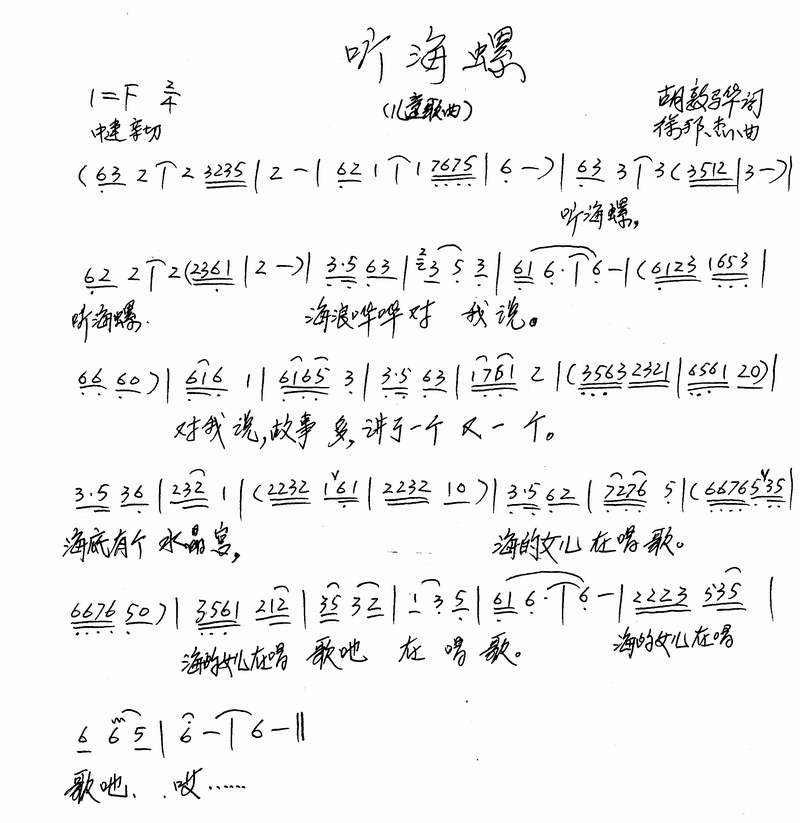 听海螺
1=F 2/4 (儿童歌曲) 胡敦骅词
中速 亲切 徐邦杰曲
(63 2 | 2 3235 | 2 - | 62 1 | 1 7675 | 6 -) | 63 3 | 3(3512 | 3-) |
听海螺,
62 2 | 2(2361 | 2 -) | 3·5 63 | 2 3 5 3 | 61 6· | 6 - | (6123 1653 |
听海螺. 海浪哗哗对 我 说。
66 60) | 616 1 | 6165 3 | 3·5 63 | 1761 2 | (3563 2321 | 6561 20) |
对我 说,故事 多,讲了一个 又 一 个。
3·5 36 | 232 1 | (2232 161 | 2232 10) | 3·5 62 | 7276 5 | (66765 35 |
海底有个 水晶宫, 海的女儿 在唱 歌。
6676 50) | 3561 212 | 35 32 | 1 3 5 | 61 6· | 6 - | 2223 535 |
海的女儿在唱 歌吔 在 唱 歌。 海的女儿在唱
6 6 5 | 6 - | 6 - ‖
歌吔、 哎……